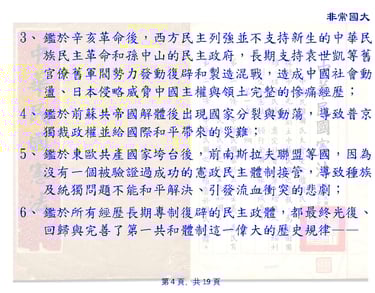 非常國大
3、鑑於辛亥革命後，西方民主列強並不支持新生的中華民
族民主革命和孫中山的民主政府，長期支持袁世凱等舊
官僚舊軍閥勢力發動復辟和製造混戰，造成中國社會動
盪、日本侵略威脅中國主權與領土完整的慘痛經歷；
4、鑑於前蘇共帝國解體後出現國家分裂與動蕩，導致普京
獨裁政權並給國際和平帶來的災難；
5、鑑於東歐共產國家垮台後，前南斯拉夫聯盟等國，因為
沒有一個被驗證過成功的憲政民主體制接管，導致種族
及統獨問題不能和平解決、引發流血衝突的悲劇；
6、鑑於所有經歷長期專制復辟的民主政體，都最終光復、
回歸與完善了第一共和體制這一偉大的歷史規律——
第 4 頁，共 19 頁